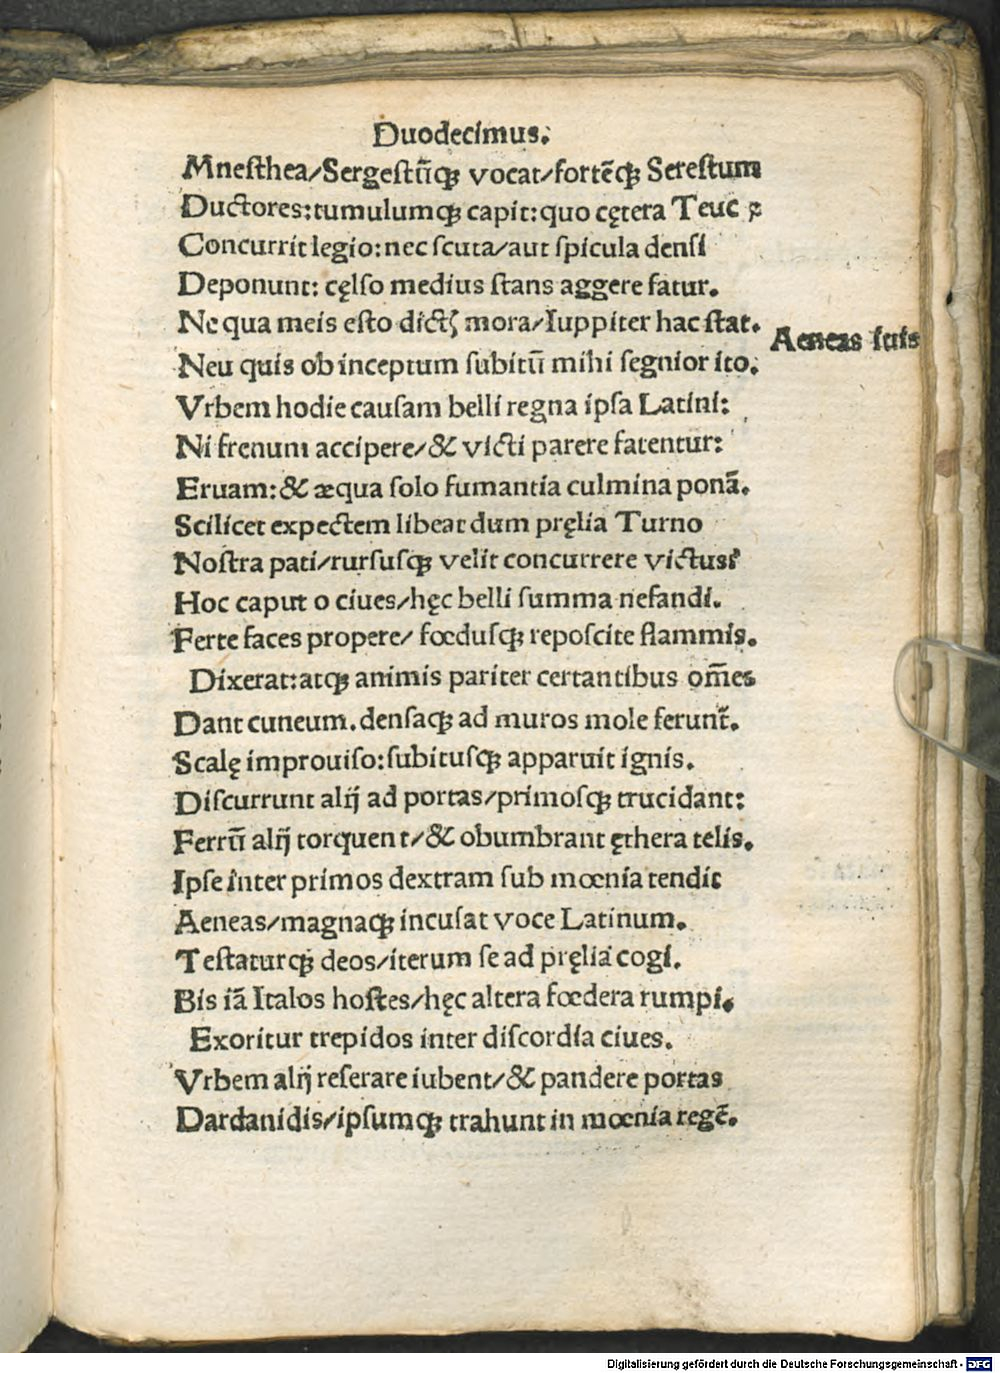 Duodecimus.
Mneſthea/Sergeſtũqꝫ vocat/fortẽqꝫ Sereſtum
Ductores:tumulumqꝫ capit:quo cętera Teuc ꝛ
Concurrit legio:nec ſcuta/aut ſpicula denſi
Deponunt: cęlſo medius ſtans aggere fatur.
Ne qua meis eſto dictꝭ mora/Iuppiter hac ſtat.
Aeneas ſuis
Neu quis ob inceptum ſubitũ mihi ſegnior ito.
Vrbem hodie cauſam belli regna ipſa Latini:
Ni frenum accipere/& victi parere fatentur:
Eruam:& æqua ſolo fumantia culmina ponã.
Scilicet expectem libeat dum pręlia Turno
Noſtra pati/rurſuſqꝫ velit concurrere victus?
Hoc caput o ciues/hęc belli ſumma nefandi.
Ferte faces propere/ fœduſqꝫ repoſcite flammis.
Dixerat:atqꝫ animis pariter certantibus om̃es
Dant cuneum.denſaqꝫ ad muros mole ferunt̃.
Scalę improuiſo:ſubituſqꝫ apparuit ignis.
Diſcurrunt alij ad portas/primoſqꝫ trucidant:
Ferrũ alij torquent/& obumbrant ęthera telis.
Ipſe inter primos dextram ſub mœnia tendit
Aeneas/magnaqꝫ incuſat voce Latinum.
Teſtaturqꝫ deos/iterum ſe ad pręlia cogi.
Bis iã Italos hoſtes/hęc altera fœdera rumpi.
Exoritur trepidos inter diſcordia ciues.
Vrbem alij reſerare iubent/& pandere portas
Dardanidis/ipſumqꝫ trahunt in mœnia regẽ.
Digitalisierung gefördert durch die Deutsche Forschungsgemeinschaft - DFG